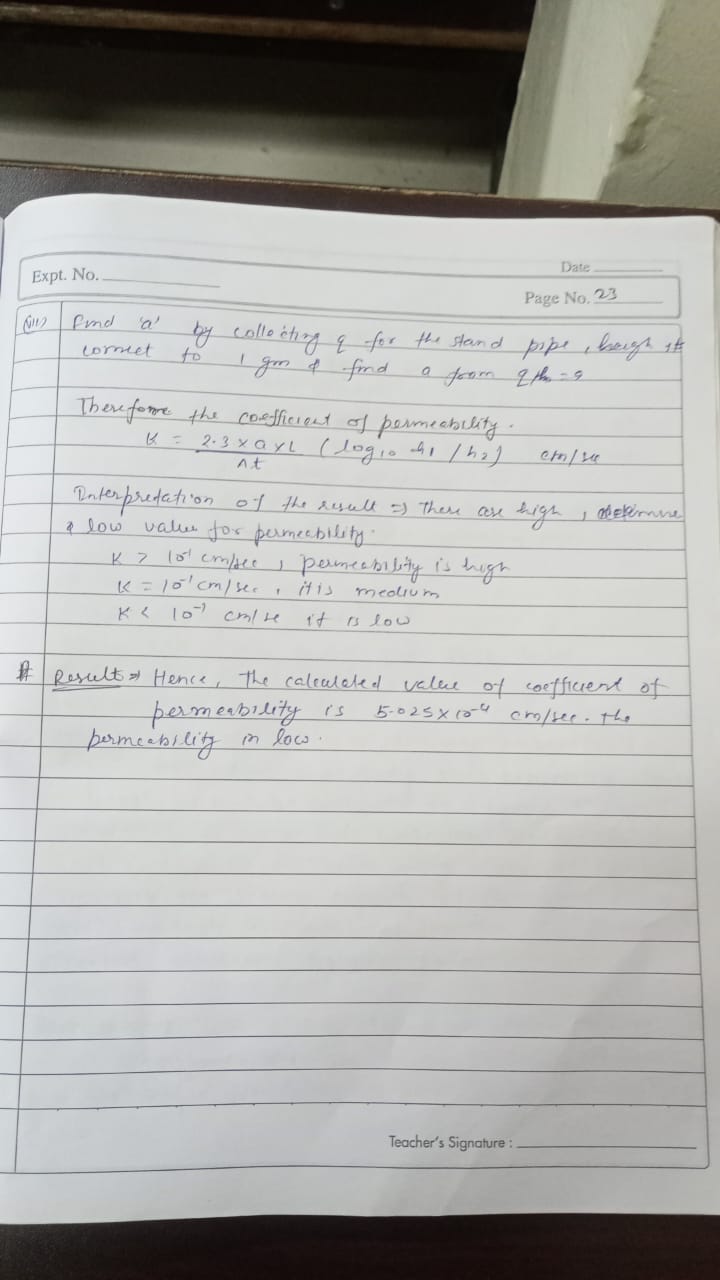 Expt. No.
Date
Page No. 23
(VII) Find 'a' by collecting q for the stand pipe, weigh it
correct to 1 gm & find a from q/h = a
Therefore the coefficient of permeability.
K = 2.3 x a x L (log10 h1 / h2) cm/sec
At
Interpretation of the result => There are high,
& low value for permebility.
K > 10-1 cm/sec, permeability is high
K = 10-1 cm/sec, it is medium
K < 10-7 cm/se it is low
# Result => Hence, the calculated value of coefficient of
permeability is 5.025 x 10-4 cm/sec. the
permeability in low.
Teacher's Signature :